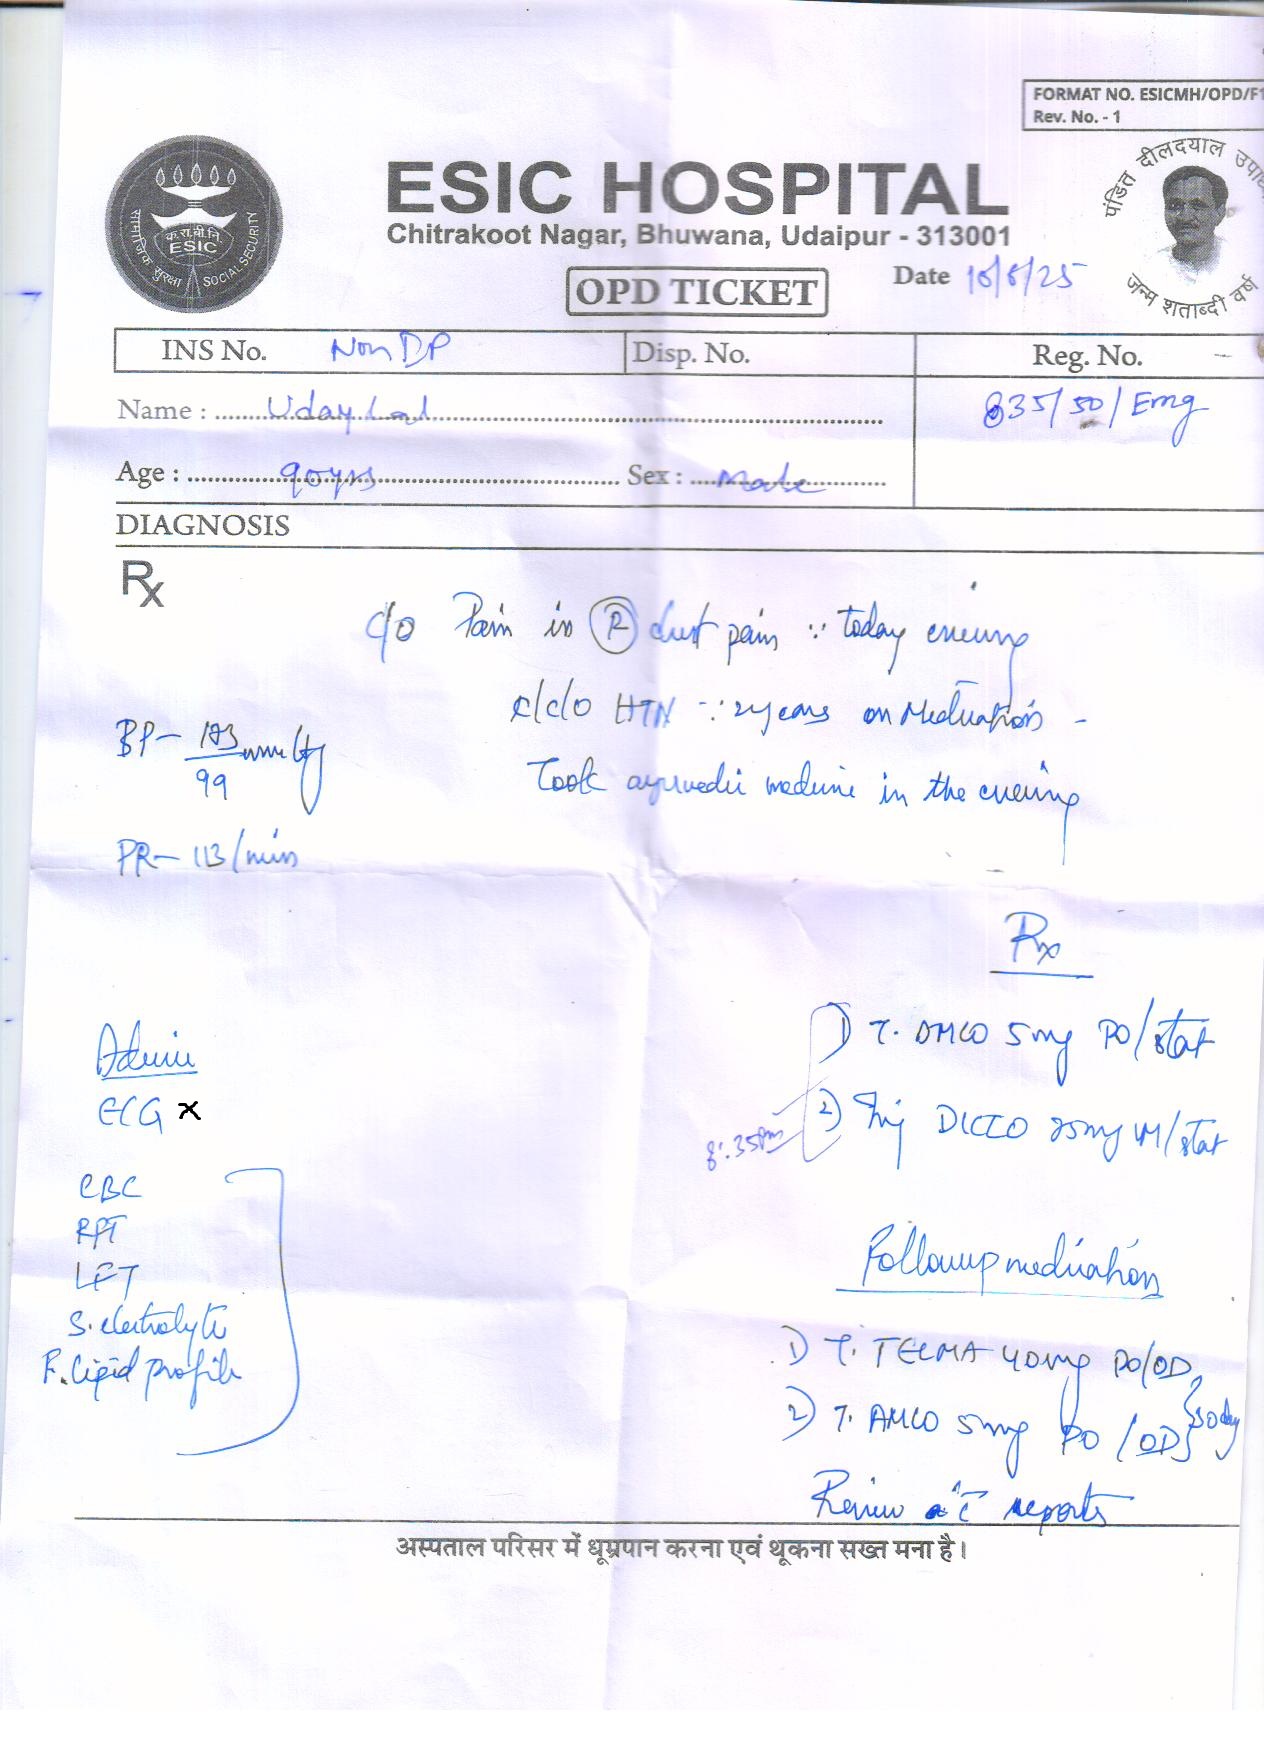 FORMAT NO. ESICMH/OPD/F1
Rev. No. - 1
ESIC HOSPITAL
Chitrakoot Nagar, Bhuwana, Udaipur - 313001
OPD TICKET
Date 16/6/25
पंडित दीलदयाल उपाध
जन्म शताब्दी वर्ष
सामाजिक सुरक्षा
क.रा.बी.नि
ESIC
SOCIAL SECURITY
INS No. Non DP Disp. No. Reg. No.
Name : Uday Lal 835/50/Emg
Age : 90yrs Sex : Male
DIAGNOSIS
Rx
c/o Pain in R chest pain ∵ today evening
HTN ∵ 2 years on Medication
BP- 183/99 mmHg
Took ayurvedic medicine in the evening
PR- 113/min
Rx
1) T. AMLO 5mg PO/stat
2) Inj DICLO 25mg IM/stat
8:35pm
Advice
ECG x
CBC
RFT
LFT
S. electrolyte
F. lipid profile
Followup medication
1) T. TELMA 40mg PO/OD
2) T. AMLO 5mg PO/OD
Review c̄ reports
अस्पताल परिसर में धूम्रपान करना एवं थूकना सख्त मना है।